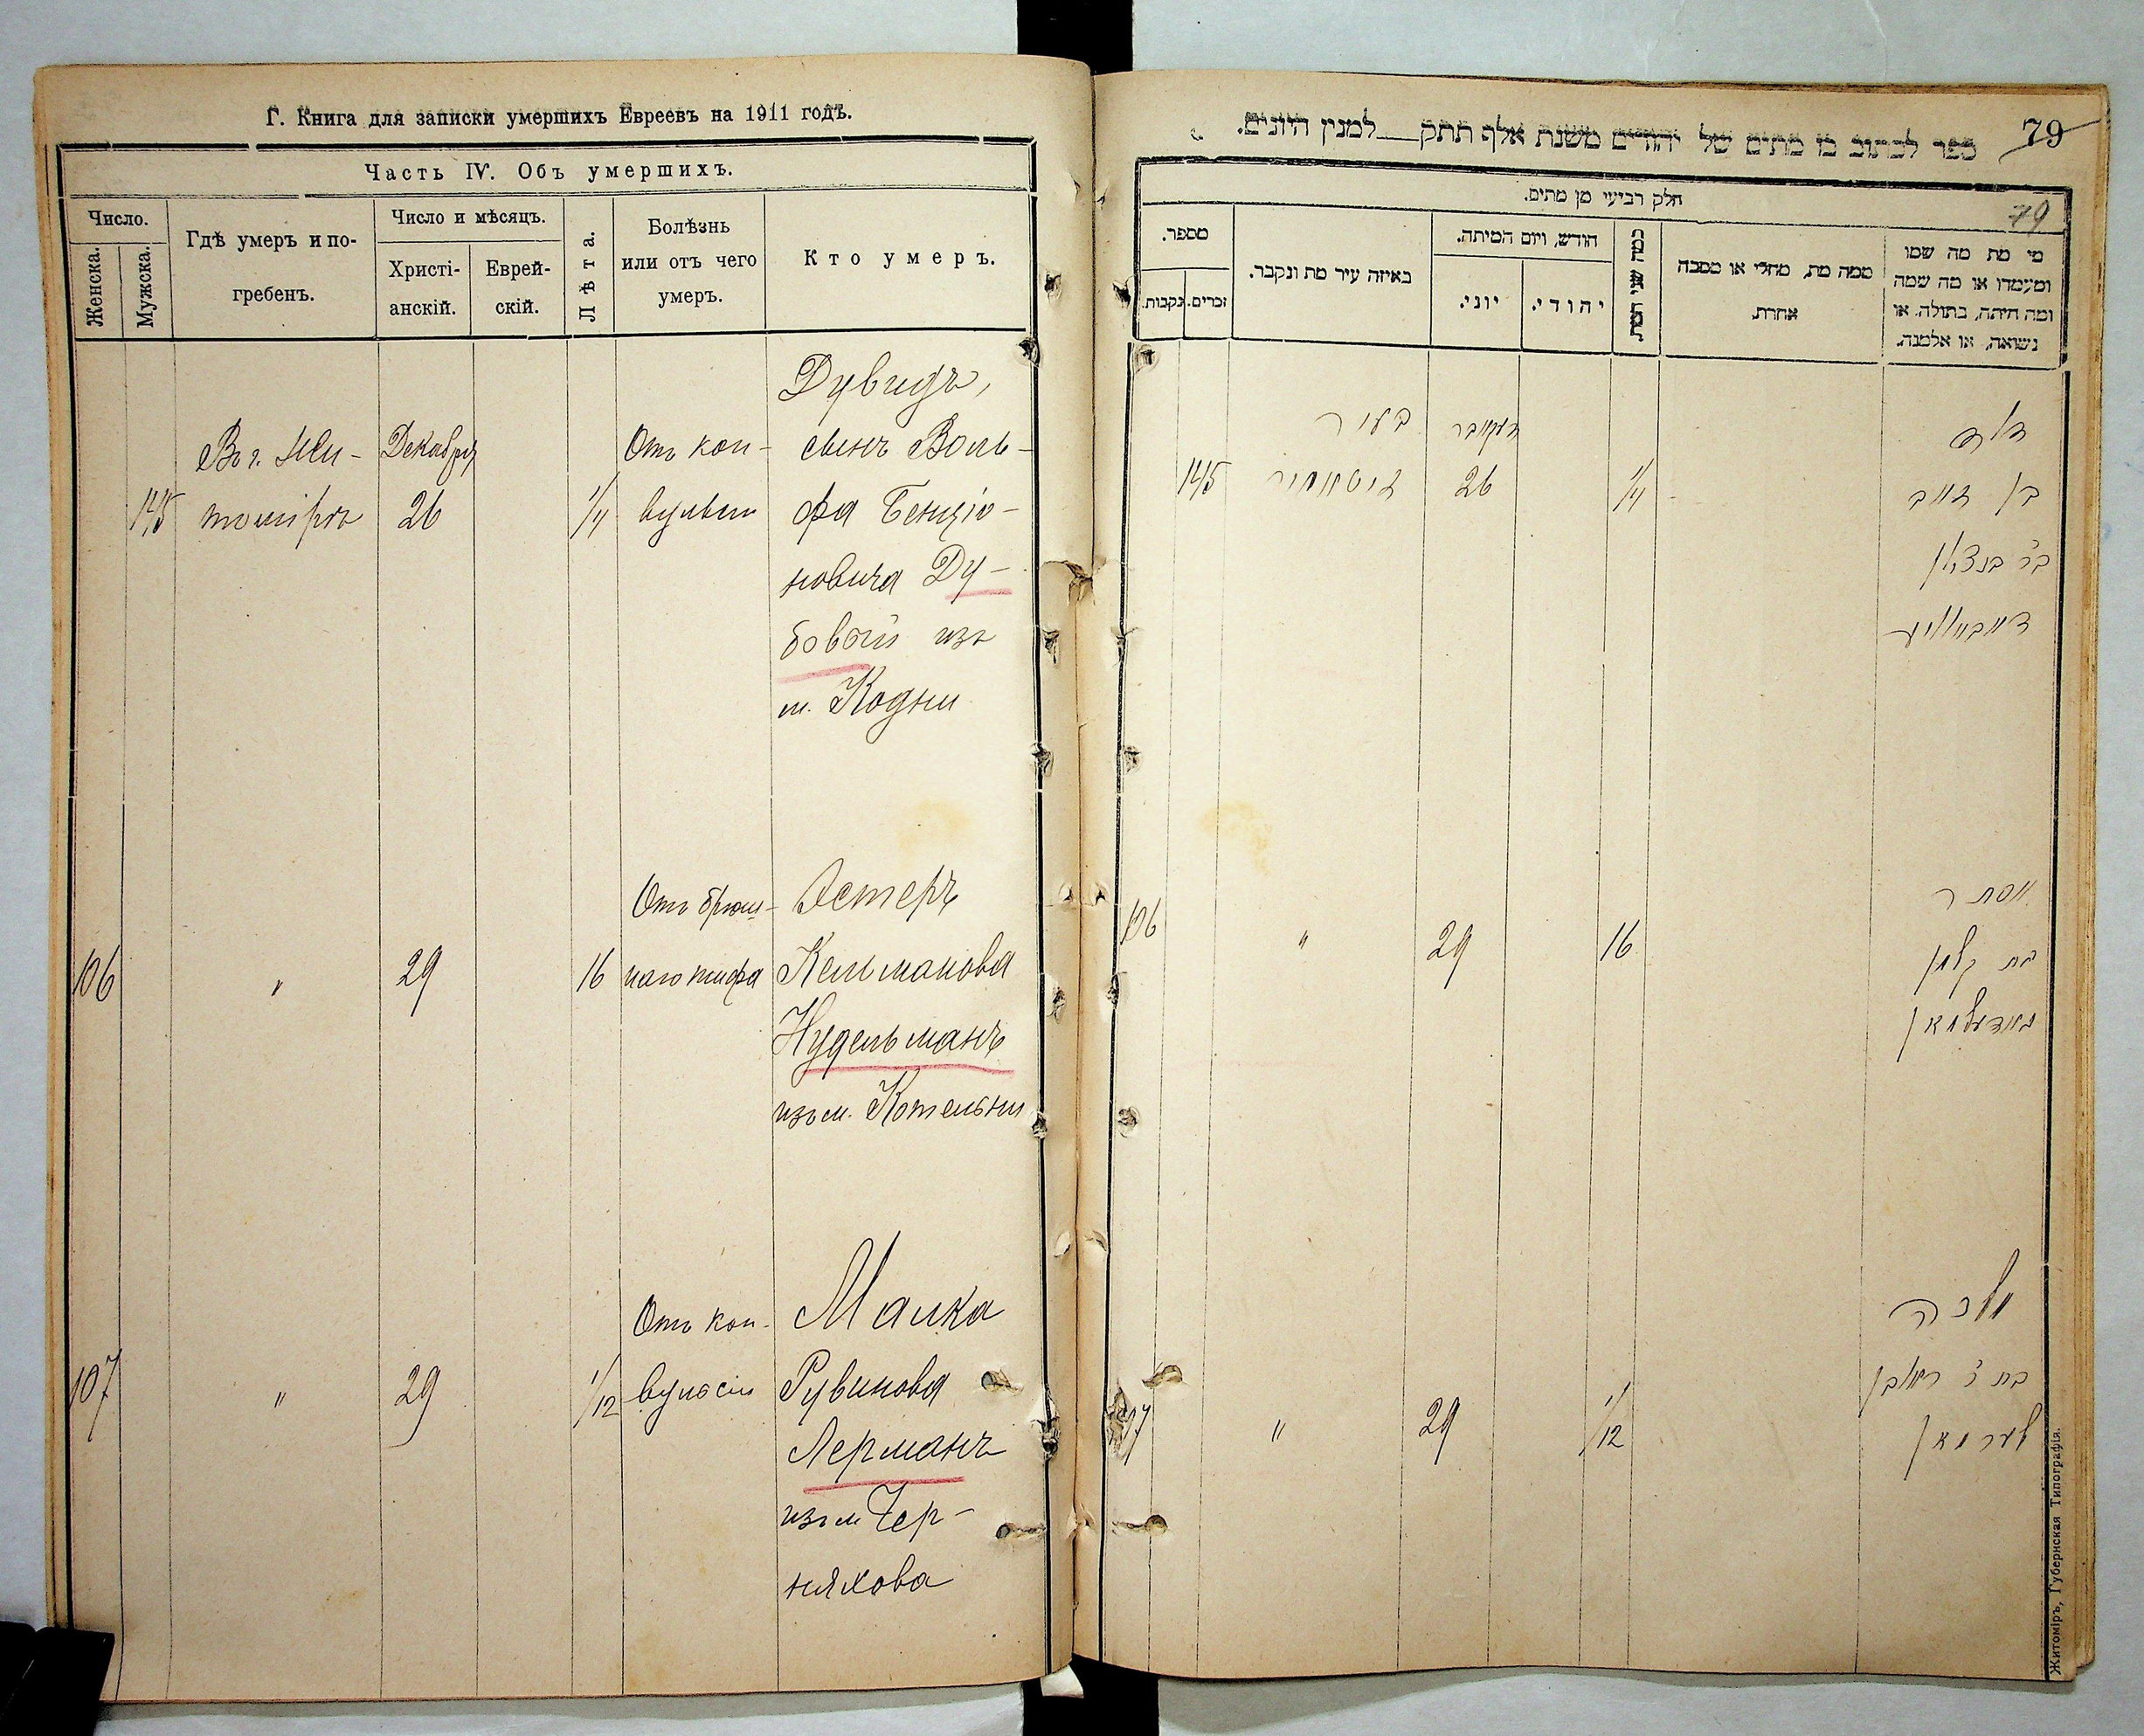 Г. Книга для записки умершихъ Евреевъ на 1911 годъ.
Часть IV. Объ умершихъ.
Число.
Женска.
Мужска.
Гдѣ умеръ и по-
гребенъ.
Число и мѣсяцъ.
Христі-
анскій.
Еврей-
скій.
Лѣта.
Болѣзнь
или отъ чего
умеръ.
Кто умеръ.
145
Въ г. Жи-
томірѣ
Декабря
26
1/4
Отъ кон-
вульсіи
Дувидъ,
сынъ Воль-
фа Бенціо-
новича Ду-
бовой изъ
м. Кодни
106
"
29
16
Отъ брюш-
наго тифа
Эстеръ
Кельманова
Нудельманъ
изъ м. Котельни
107
"
29
1/12
Отъ кон-
вульсіи
Малка
Рувинова
Лерманъ
изъ м Чер-
няхова
79
ספר לכתוב בו מתים של יהודים משנת אלף תתק למנין היונים.
חלק רביעי מן מתים.
79
מספר.
נקבות.
זכרים.
באיזה עיר מת ונקבר.
חודש, ויום המיתה.
יוני.
יהודי.
כמה שני המת
ממה מת, מחלי או מסבה
אחרת.
מי מת מה שמו
ומעמדו או מה שמה
ומה היתה, בתולה, או
נשואה, או אלמנה.
145
בעיר
זיטאמיר
דעקאבר
26
1/4
דוד
בן וואב
בר בנציון
106
"
29
16
אסתר
בת קלמן
נודעלמאן
107
"
29
1/12
מלכה
בת ר ראובן
לערמאן
Житоміръ, Губернская Типографія.